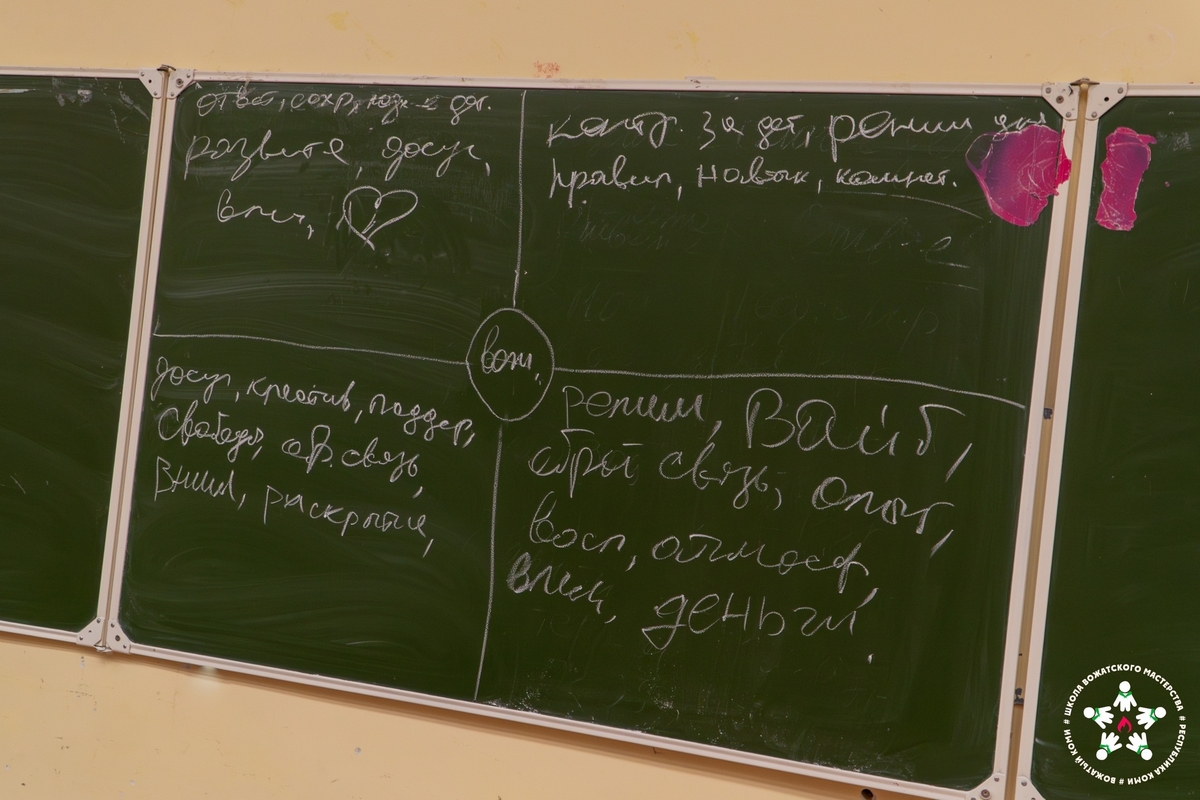 ответ, сохр, жизн е дет.
развитие, досуг,
впеч,
контр. за дет, режим дня
правил, навык, компет.
вож.
досуг, креатив, поддер,
свобода, обр. связь,
вним, раскрытие,
режим, Вайб,
обрат связь, опыт,
восп, атмосф,
впеч, деньги
# ШКОЛА ВОЖАТСКОГО МАСТЕРСТВА # РЕСПУБЛИКА КОМИ # ВОЖАТЫЙ КОМИ